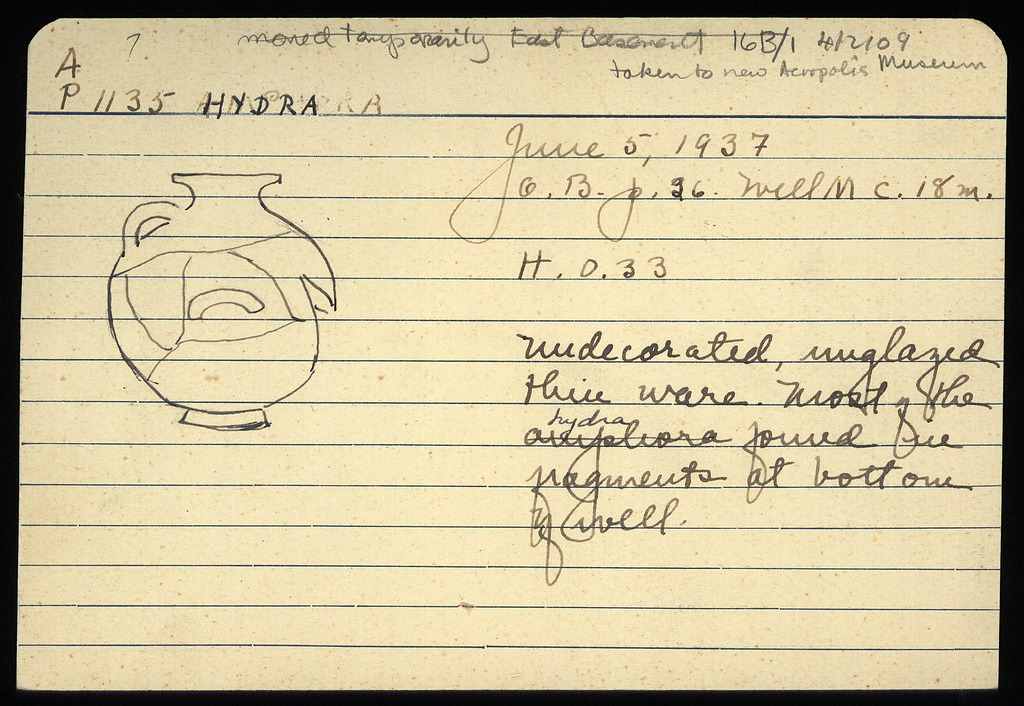 moved temporarily East Basement 16B/1 4/2/09
taken to new Acropolis Museum
A
P 1135 HYDRA
June 5, 1937
O. B. p. 36. Well M c. 18 m.
H. 0.33
Undecorated, unglazed
thin ware. Most of the
hydra
amphora found in
fragments at bottom
of well.